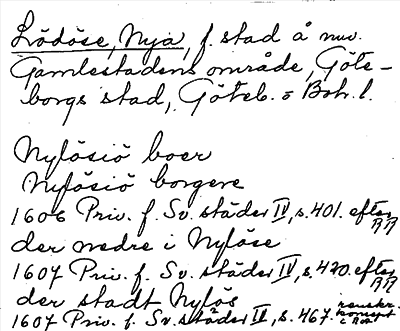 Lödöse, Nya, f. stad å nuv.
Gamlestadens område, Göte-
borgs stad, Göteb. o Boh. l.
Nylösiö boer
Nylösiö borgere
1606 Priv. f. Sv. städer IV, s. 401. efter RA
der nedre i Nylöse
1607 Priv. f. Sv. städer IV, s. 420. efter RA
der stadt Nylös
1607 Priv. f. Sv. städer IV, s. 467. renskr. koncept i RA